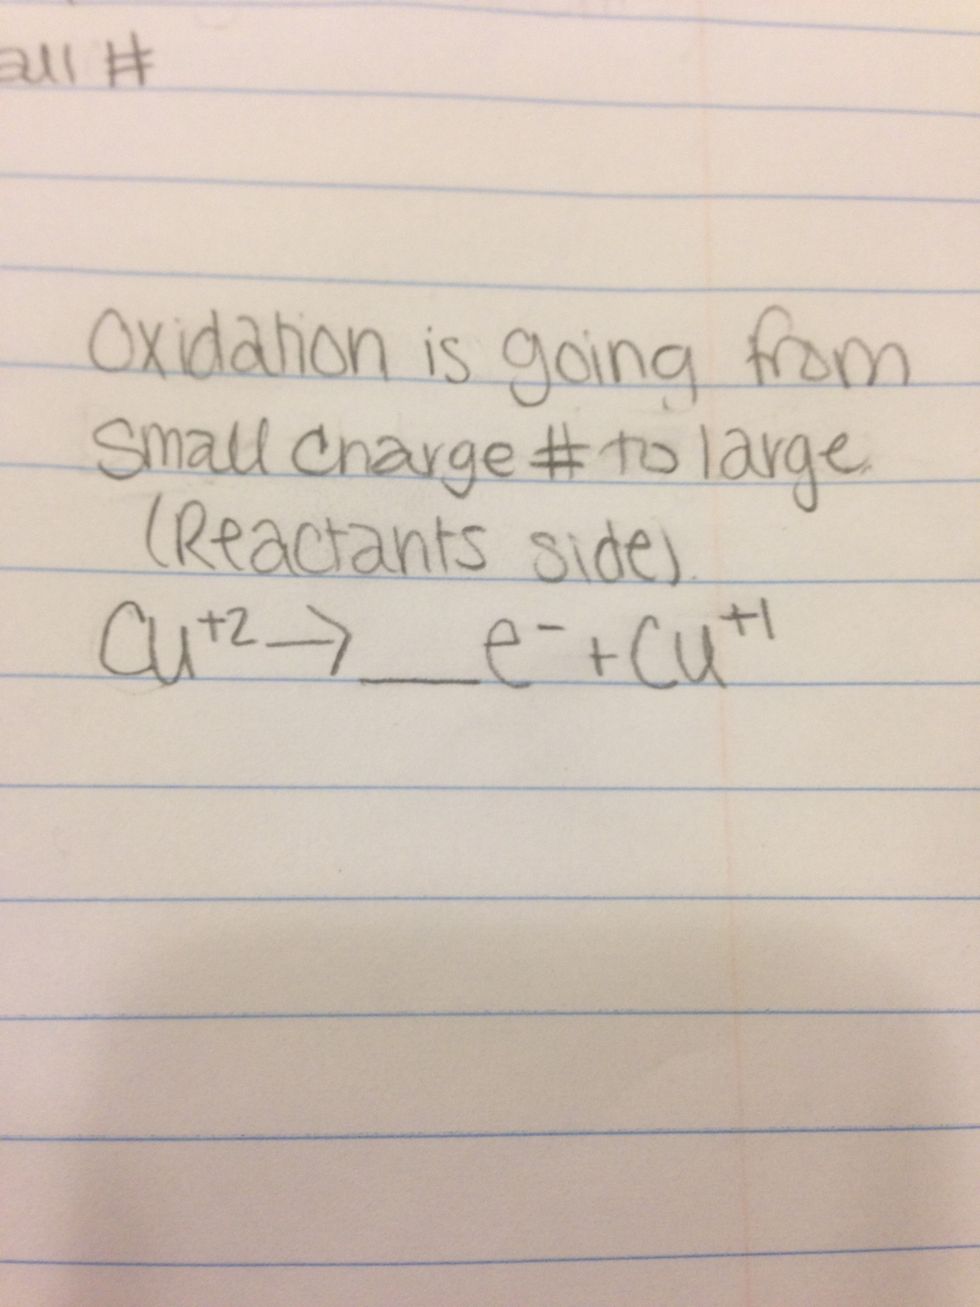 all #
Oxidation is going from
small charge # to large.
(Reactants side).
Cu⁺² → ___ e⁻ + Cu⁺¹